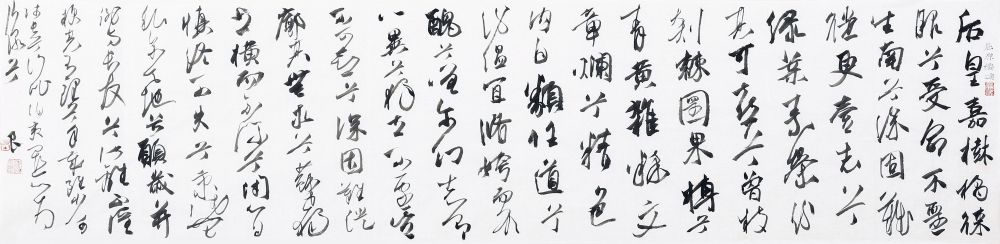 屈原橘頌
后皇嘉樹橘徕
服兮受命不遷
生南兮深固難
徙更壹志兮
綠葉素榮紛
其可喜兮曾枝
剡棘圓果摶兮
青黃雜糅文
章爛兮精色
内白類任道兮
紛緼宜脩姱而不
醜兮嗟尔幼志有
以異兮獨立不遷豈
不可喜兮深固難徙
廓其無求兮蘇世獨
立橫而不流兮閉心自
慎終不失兮秉德無
私参天地兮願歲并
謝與長友兮淑離不淫
梗其有理兮年歲雖少可
師長兮行比伯夷置以為
像兮